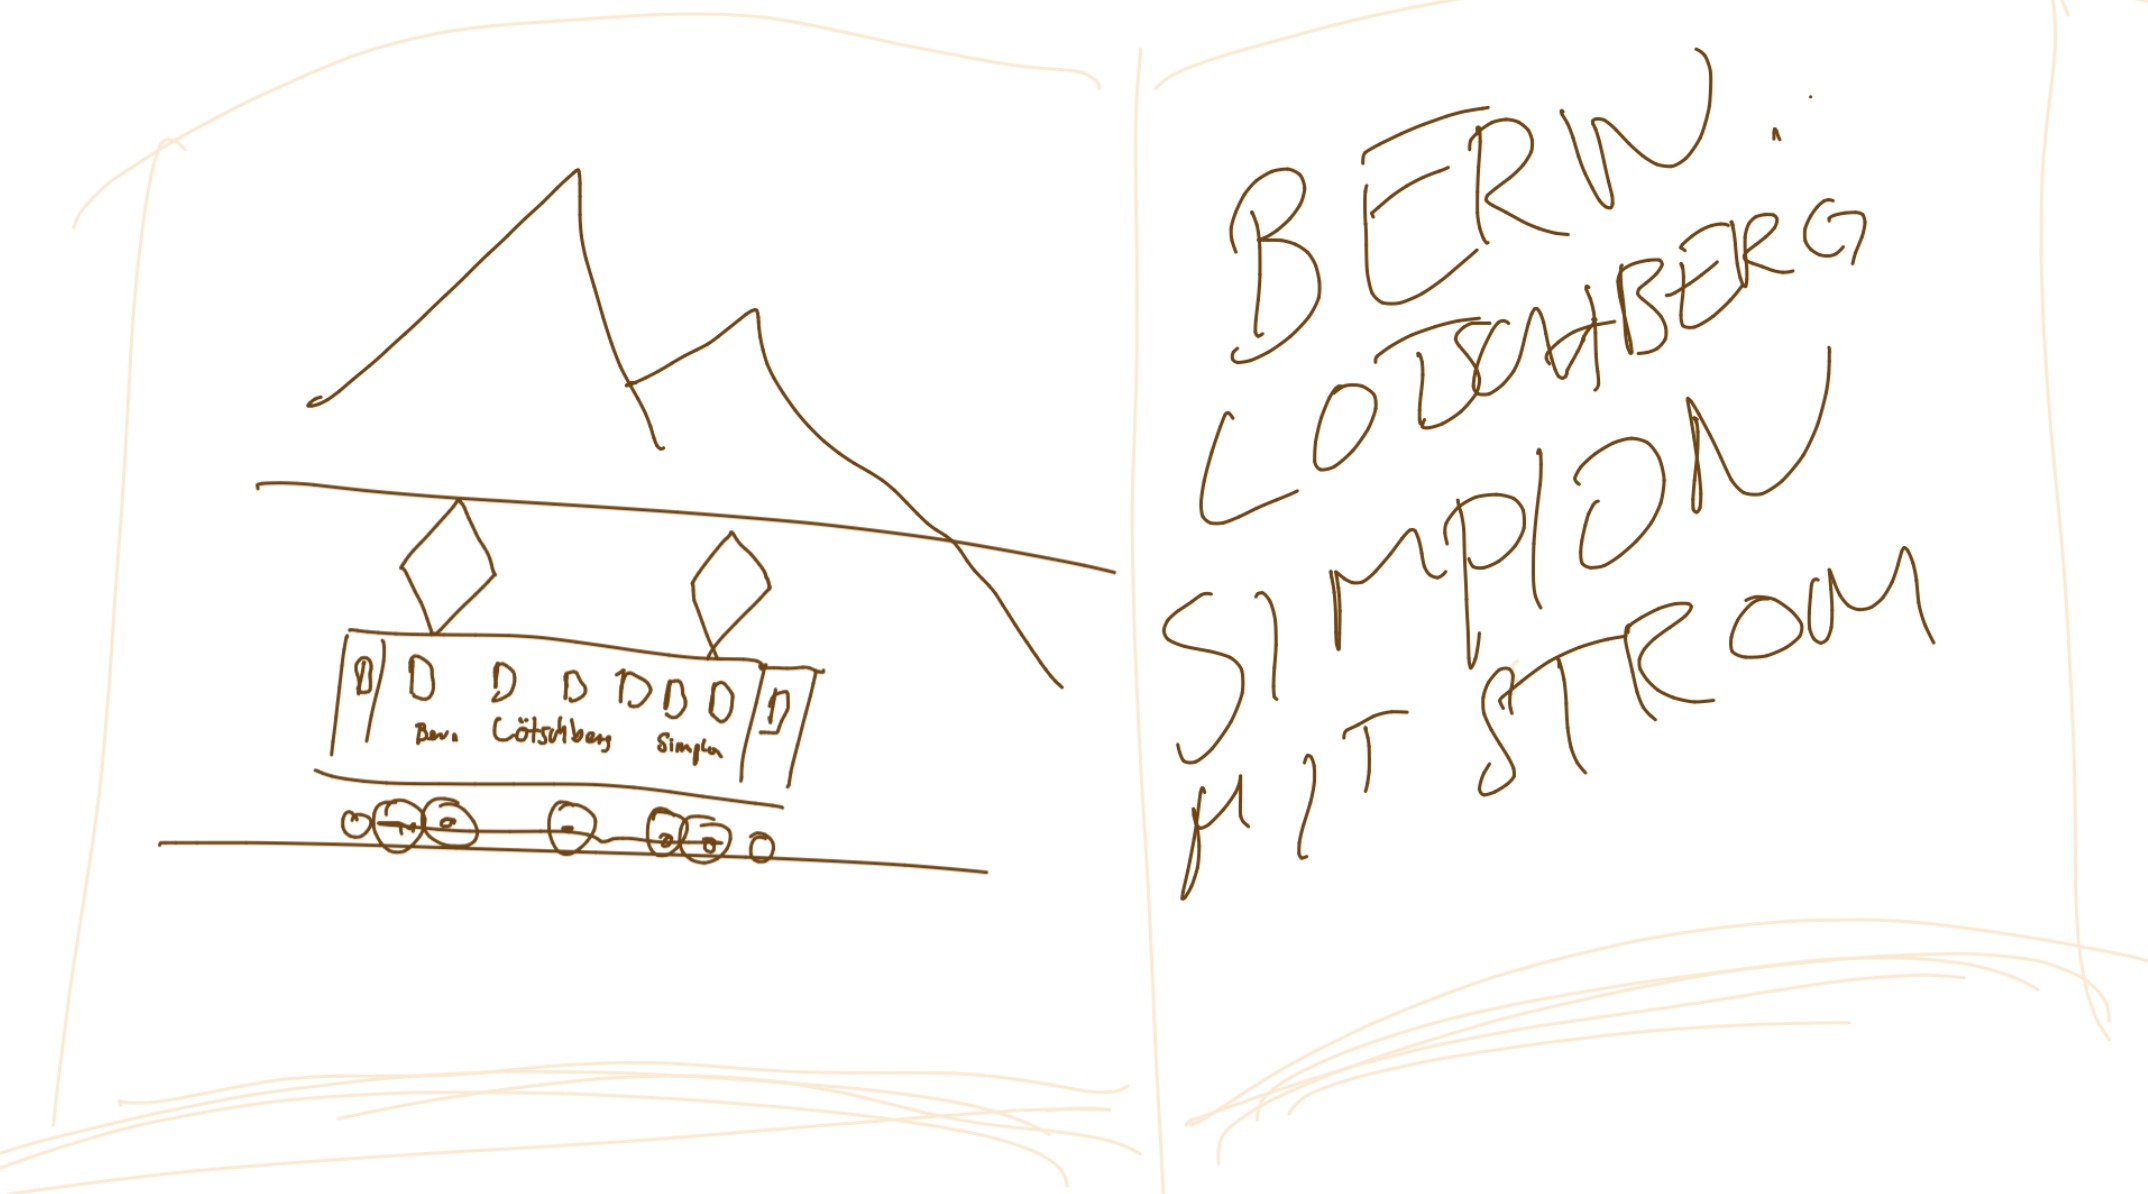 Bern Lötschberg Simplon
BERN
LÖTSCHBERG
SIMPLON
MIT STROM